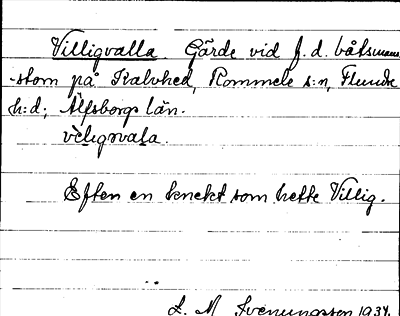 Villigvalla. Gärde vid f.d. båtsmans
-stom på Kalvhed, Rommele s:n, Flundre
h:d; Älfsborgs län.
veligsvala.
Efter en knekt som hette Villig.
S. M. Svenungsson 1934.